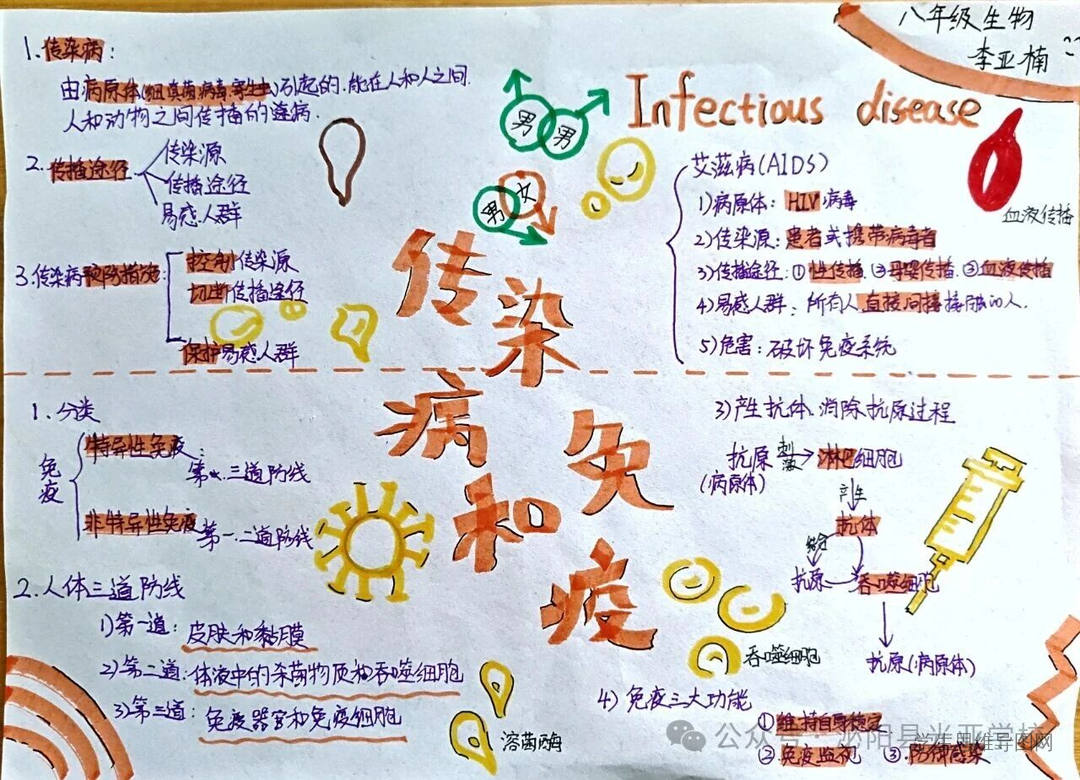 八年级生物
李亚楠
Infectious disease
传染病和免疫
1.传染病:
由病原体(细真菌病毒.寄生虫)引起的.能在人和人之间.
人和动物之间传播的疾病.
2.传播途径
传染源
传播途径
易感人群
3.传染病预防措施:
控制传染源
切断传播途径
保护易感人群
男 男
男 女
艾滋病(AIDS)
1)病原体: HIV 病毒
2)传染源:患者或携带病毒者
3)传播途径:①性传播.②母婴传播.③血液传播
4)易感人群:所有人直接间接接触的人.
5)危害:破坏免疫系统
血液传播
1.分类
免疫
特异性免疫:
第三道防线
非特异性免疫
第一.二道防线
2.人体三道防线
1)第一道:皮肤和黏膜
2)第二道:体液中的杀菌物质和吞噬细胞
3)第三道:免疫器官和免疫细胞
溶菌酶
3)产生抗体.消除抗原过程
抗原 刺激 淋巴细胞
(病原体)
产生
抗体
结合
抗原 吞噬细胞
抗原(病原体)
吞噬细胞
4)免疫三大功能
①维持自身稳定
②免疫监视 ③.防御感染
公众号